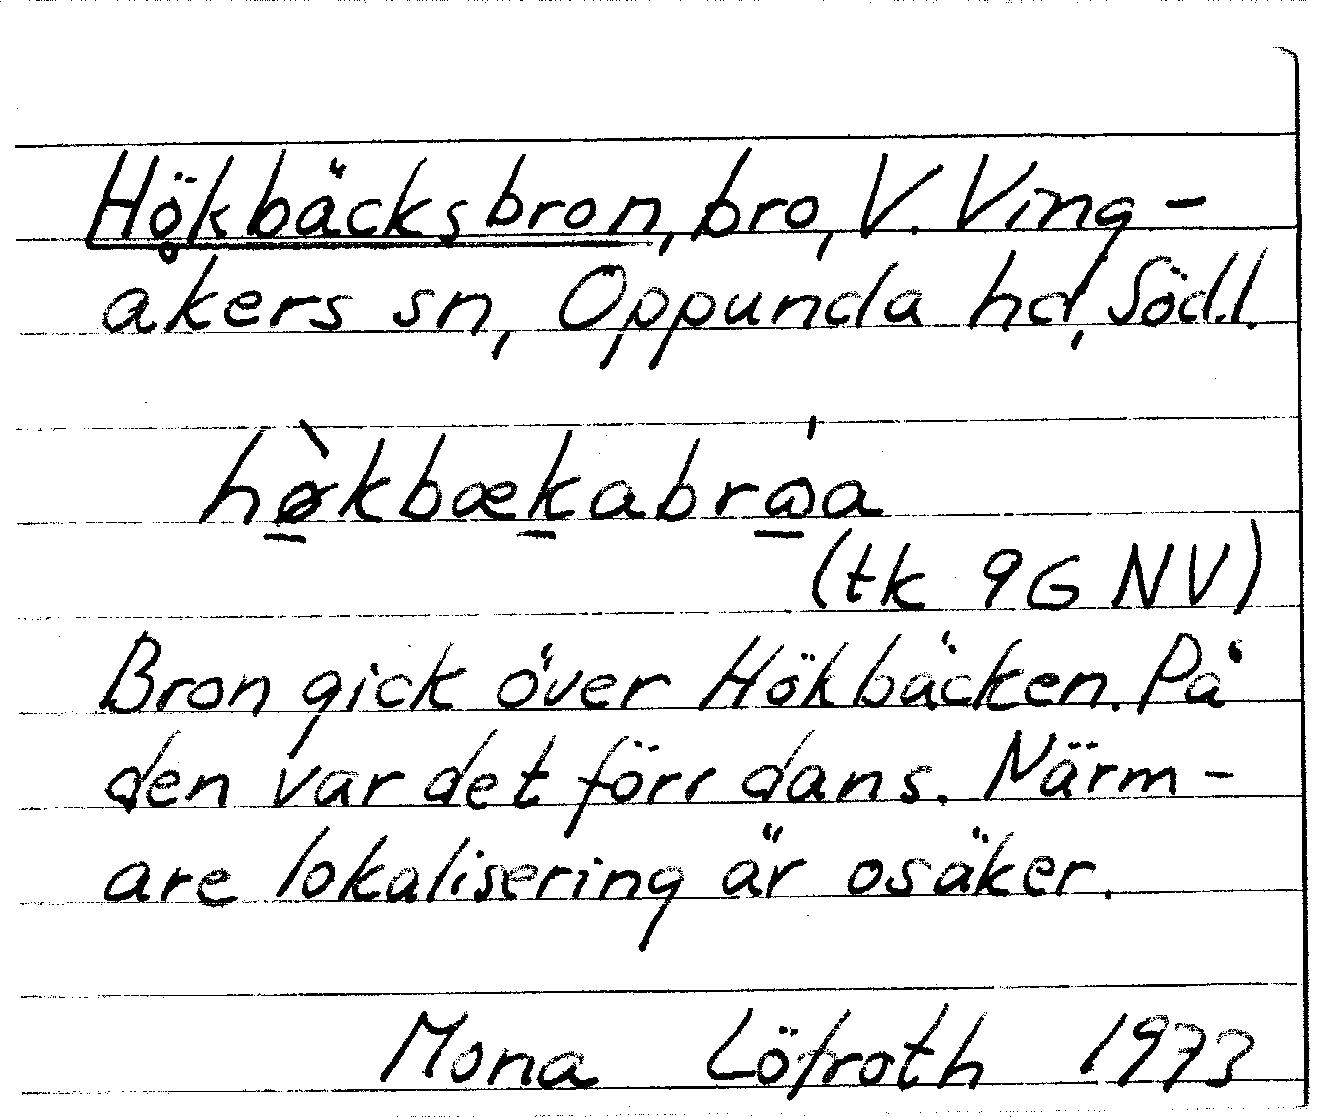 Hökbäcksbron, bro, V. Ving-
åkers sn, Oppunda hd, Södl.
hø̀kbækabrɷ́a
(tk 9G NV)
Bron gick över Hökbäcken. På
den var det förr dans. Närm-
are lokalisering är osäker.
Mona Löfroth 1973